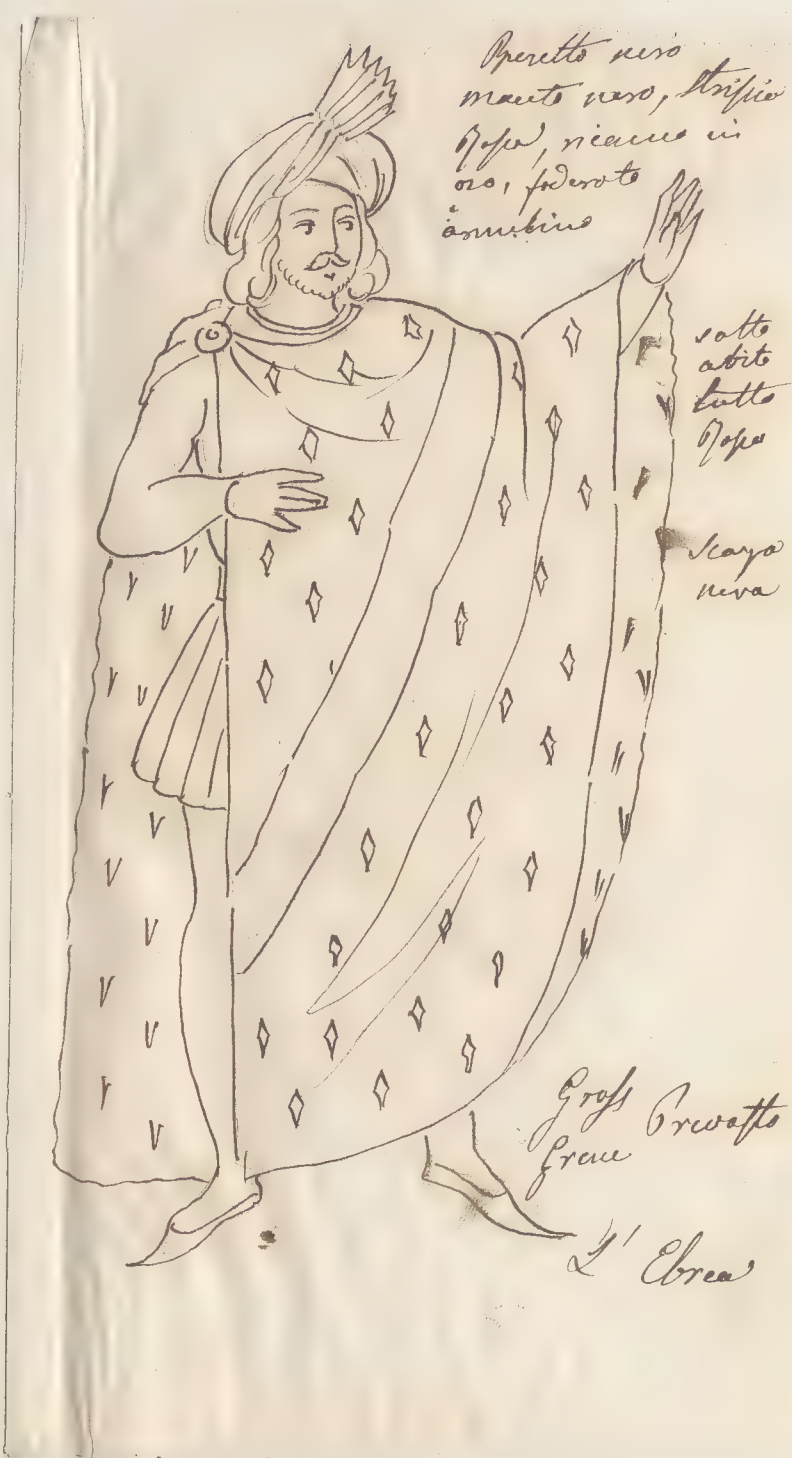 Beretto nero
manto nero, striscio
Rosa, ricamo in
oro, foderato
armelino
sotto
abito
tutto
Rosa
scarpa
nera
Gross Prevosto
Greue
L' Ebrea